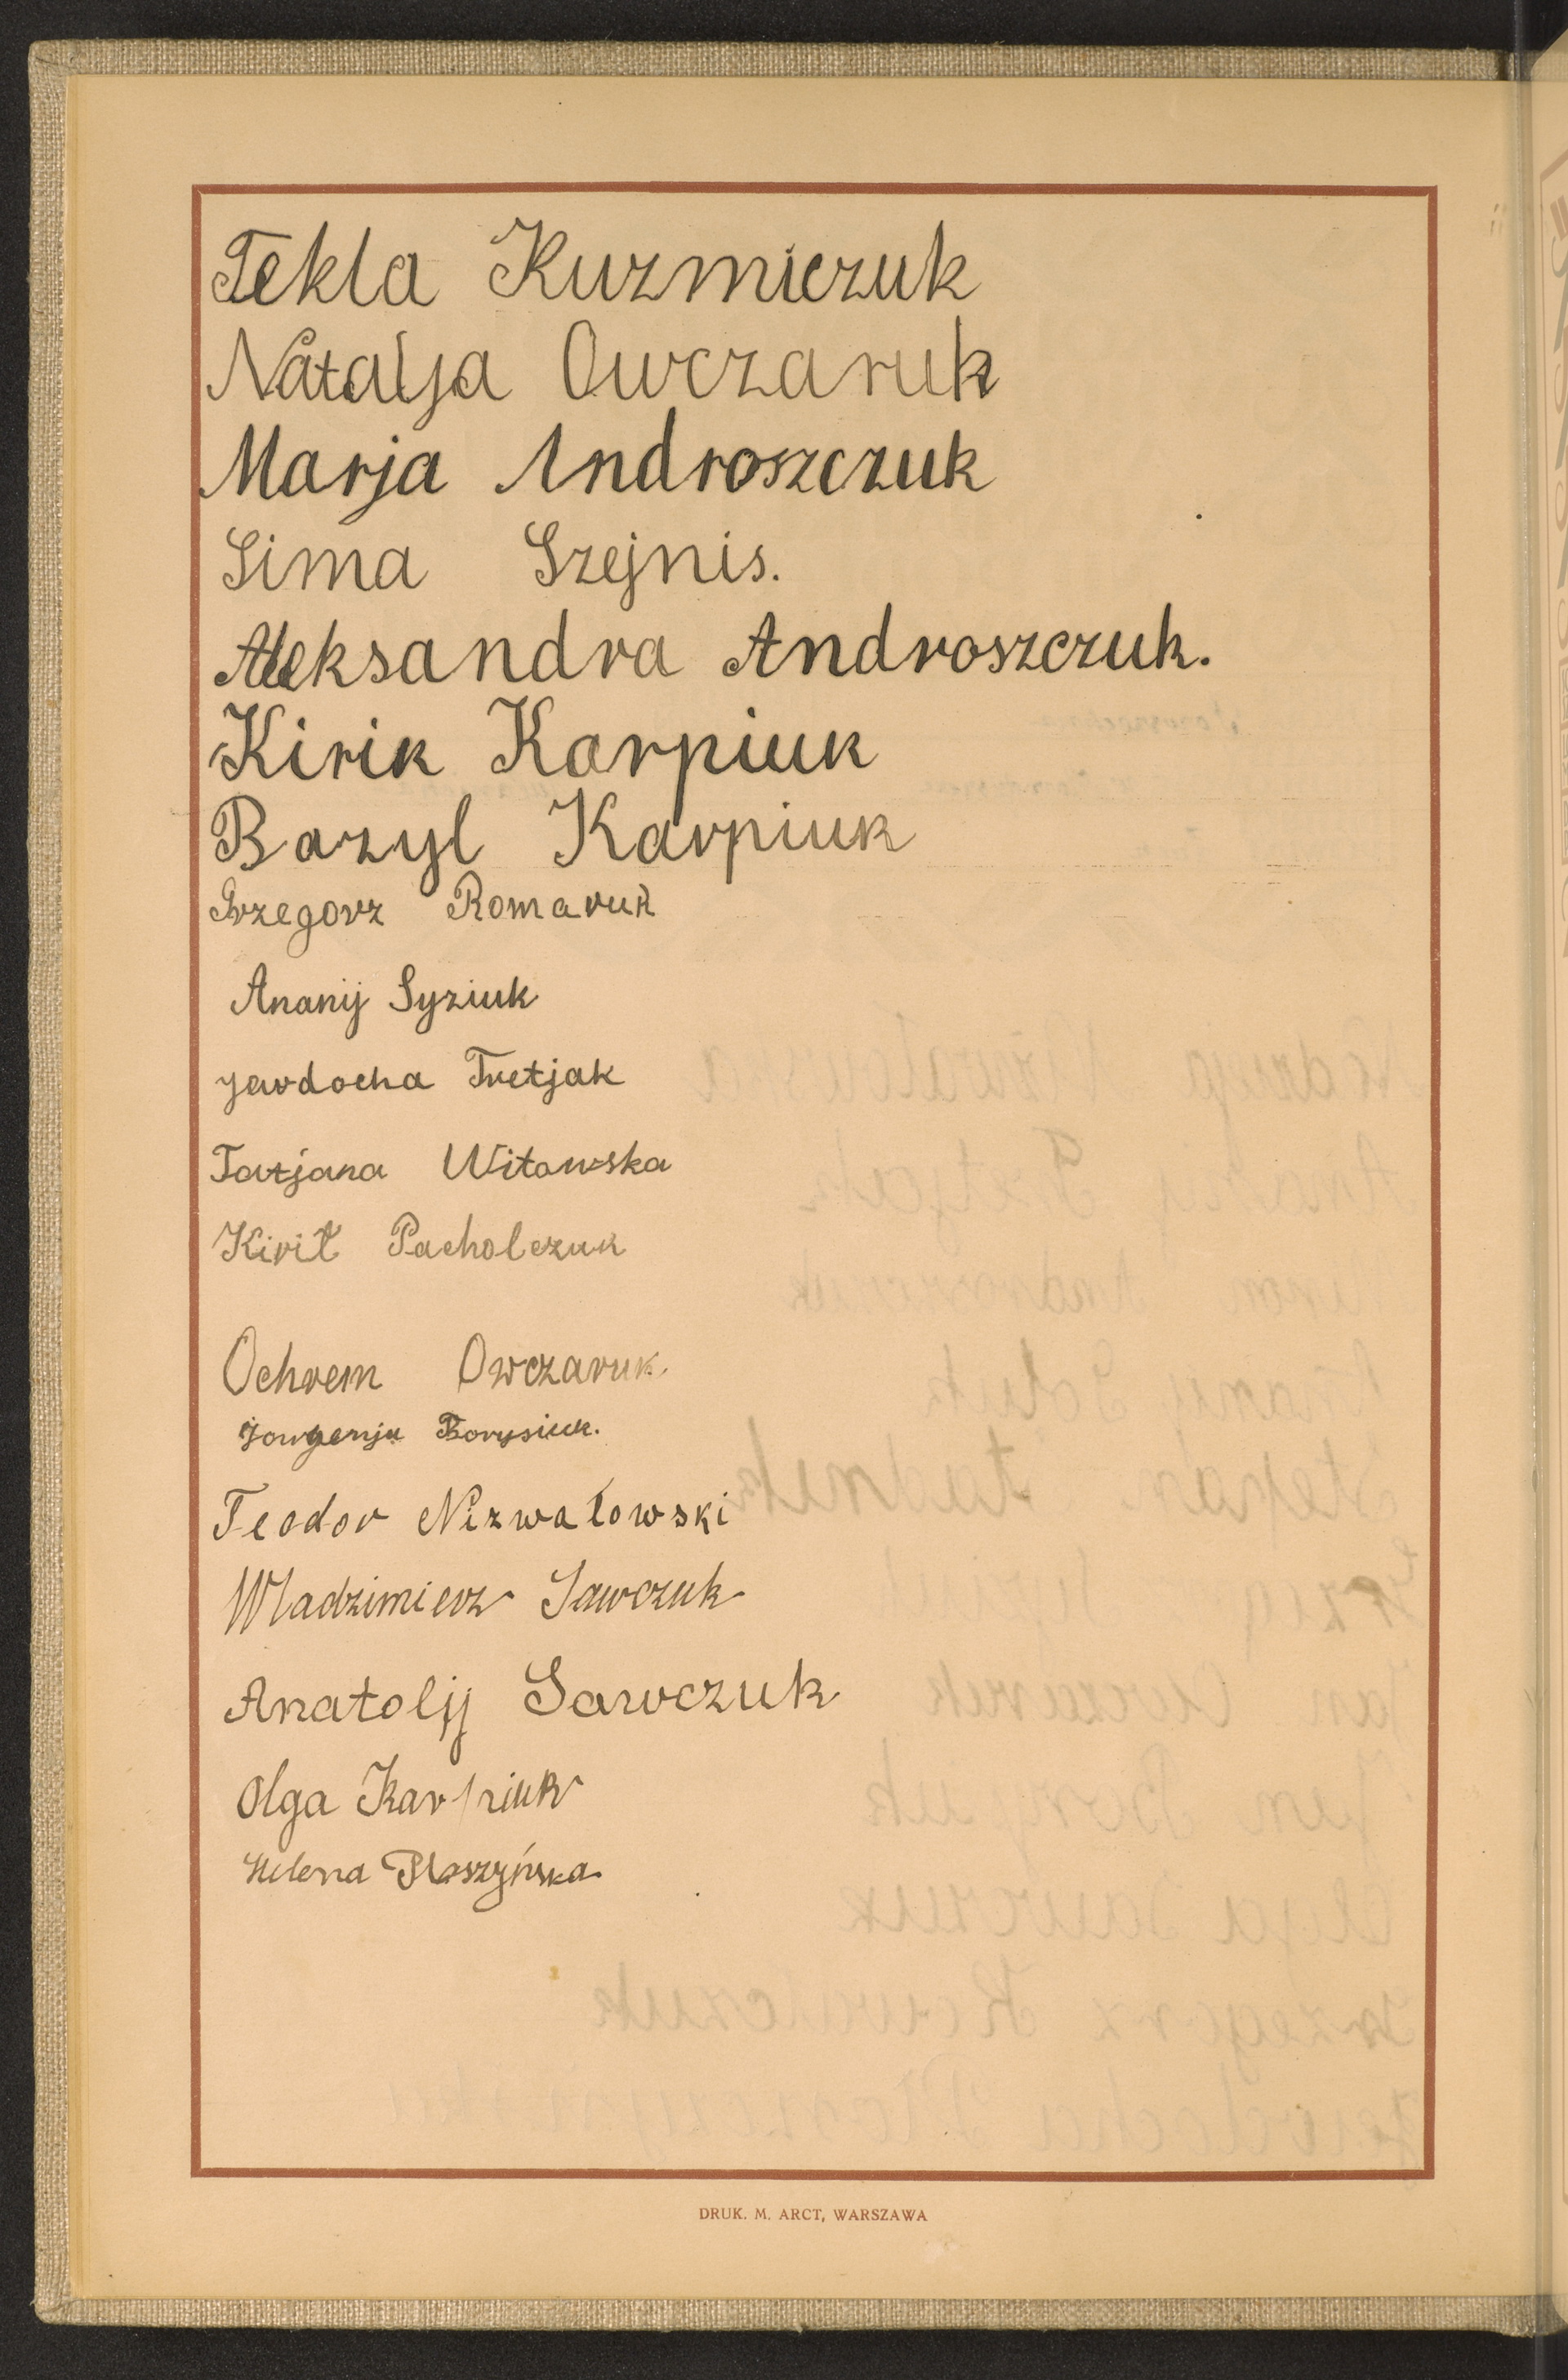 Tekla Kuzmiczuk
Natalja Owczaruk
Marja Androszczuk
Sima Szejnis.
Aleksandra Androszczuk.
Kirik Karpiuk
Bazyl Karpiuk
Grzegorz Romaruk
Ananij Syziuk
Jewdocha Tretjak
Tatjana Witowska
Kirił Pacholczuk
Ochrem Owczaruk.
Jowgenja Borysiuk.
Teodor Nizwałowski
Wladzimierz Sawczuk
Anatolij Sawczuk
Olga Karpiuk
Helena Płoszyńska
DRUK. M. ARCT, WARSZAWA